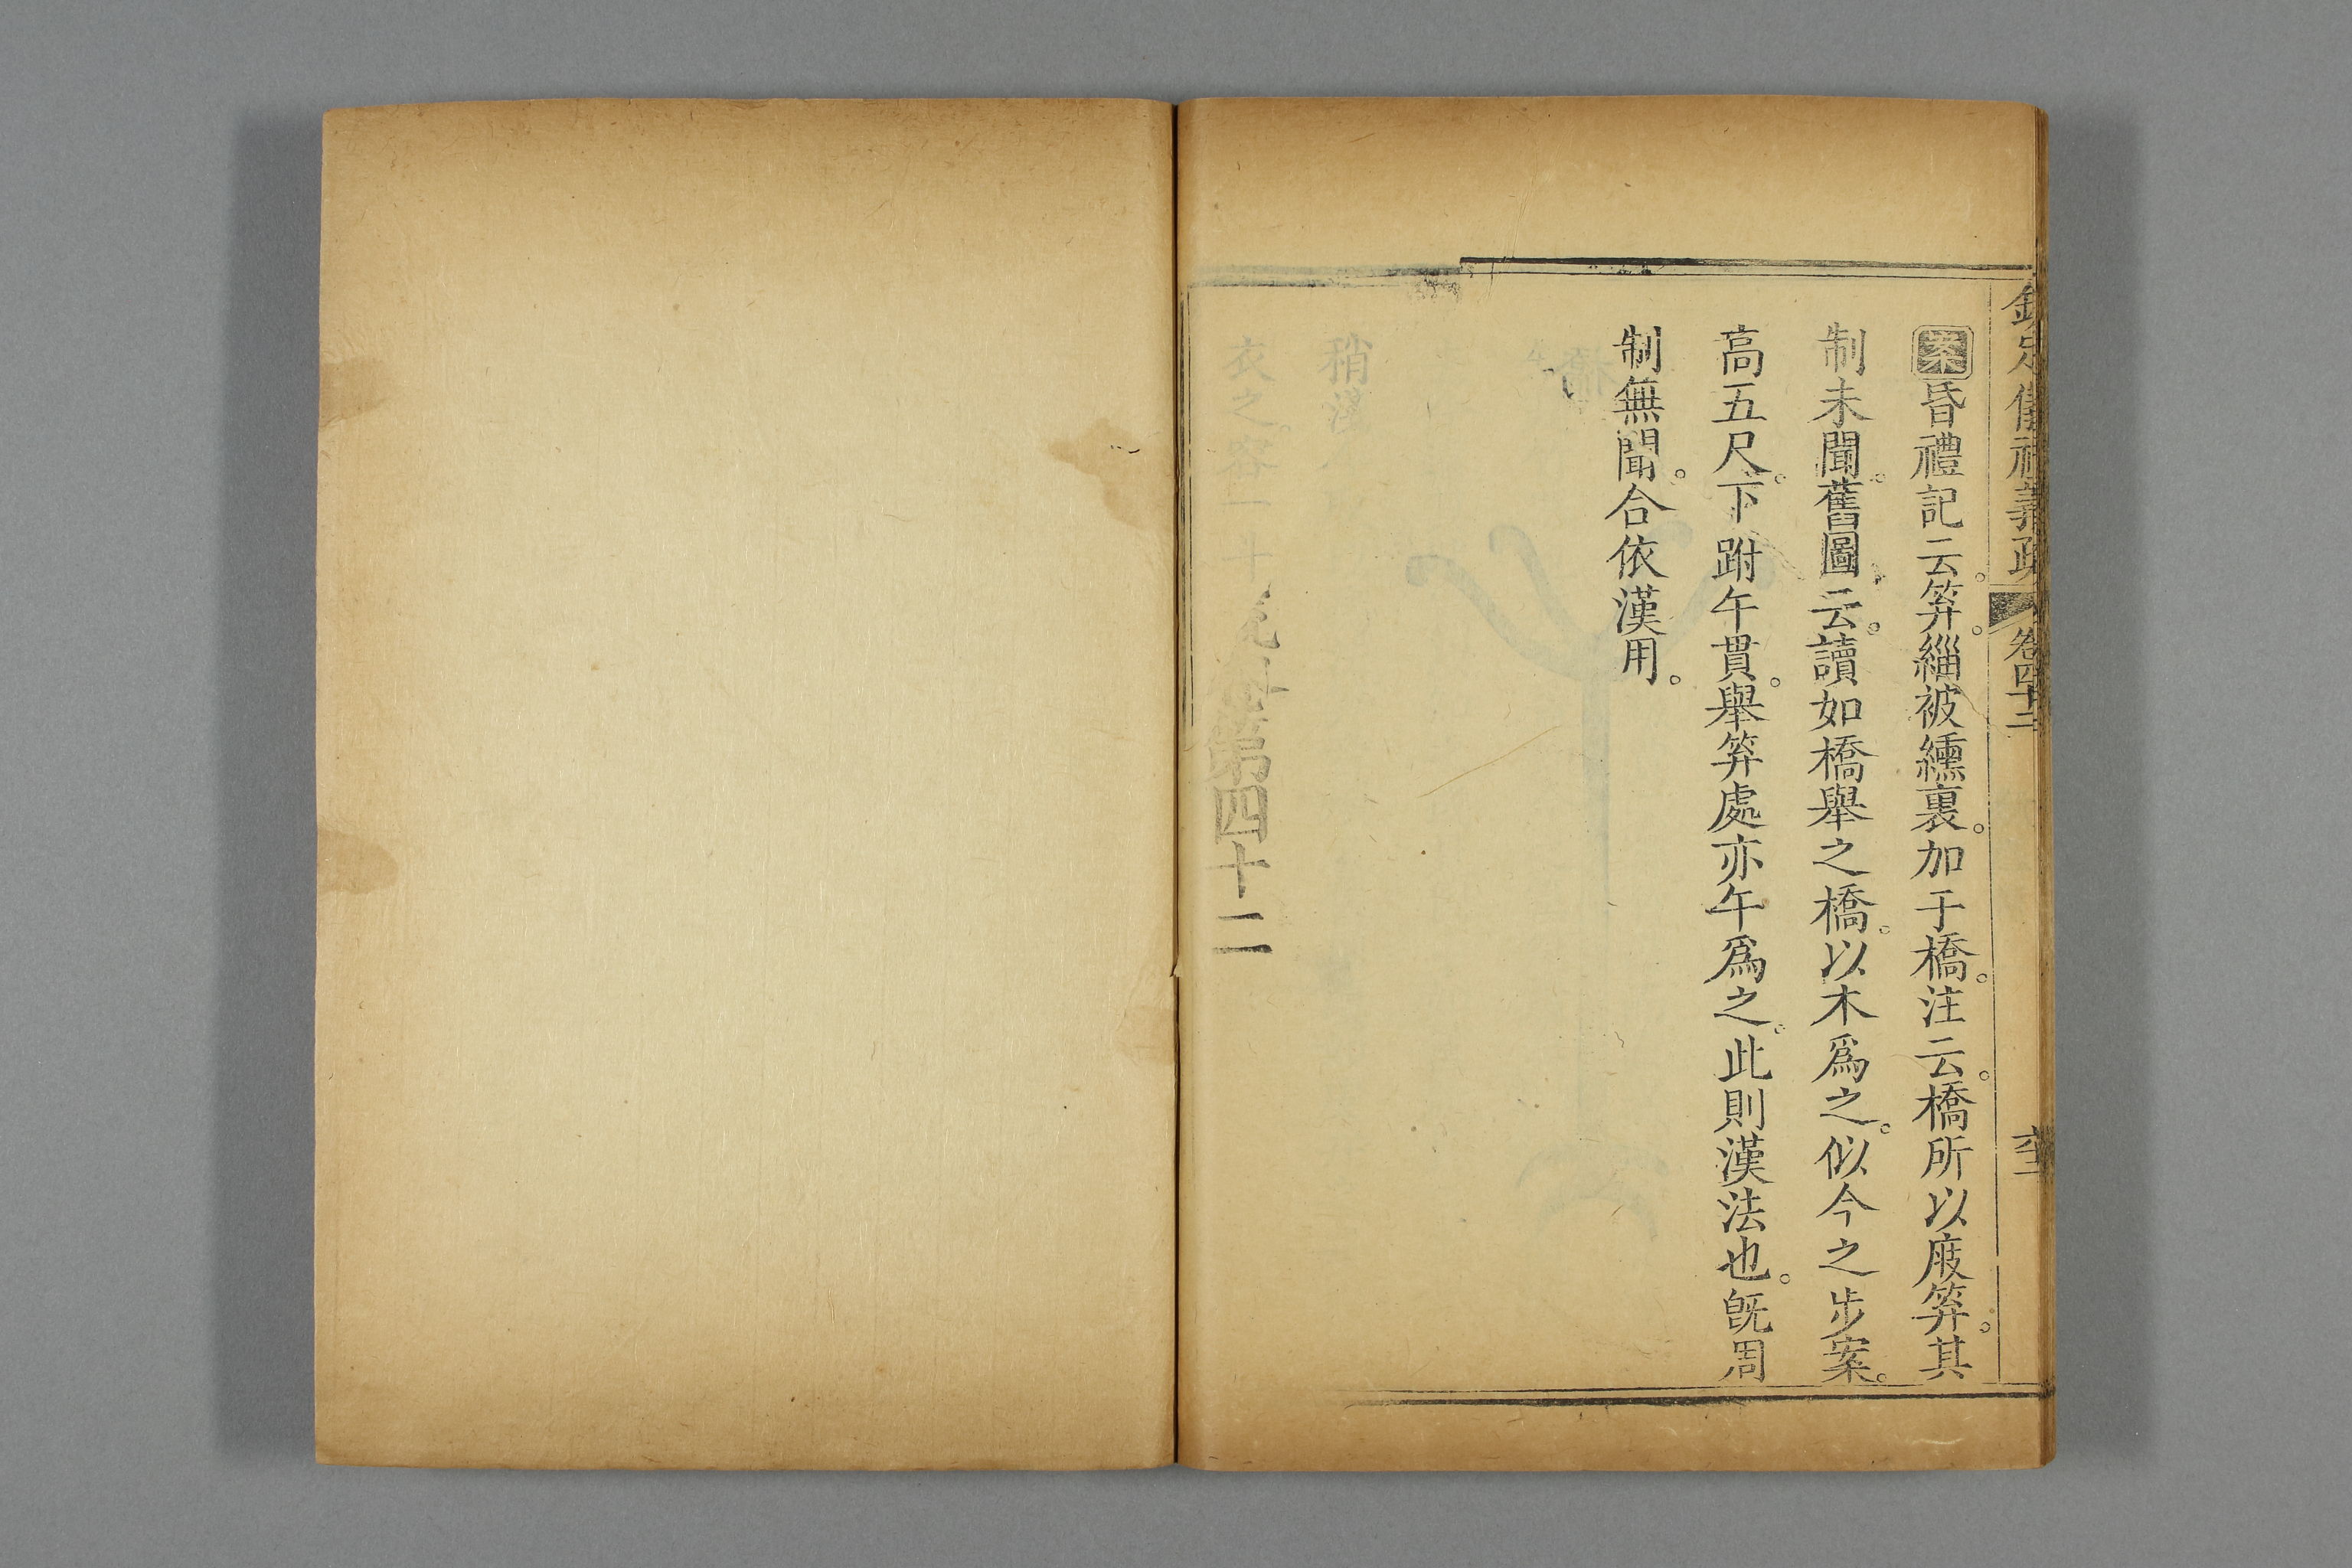 欽定儀禮義疏 卷四十二 
案昏禮記云。笲。緇被纁裏。加于橋。注云。橋所以庪笲。其
制未聞。舊圖云。讀如橋舉之橋。以木爲之。似今之步案。
高五尺。下跗午貫。舉笲處亦午爲之。此則漢法也。旣周
制無聞。合依漢用。
第四十二